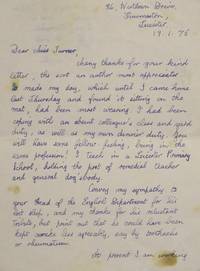 96
Thurmaston,
Leicester
19.1.76
Dear Miss Turner,
Many thanks for your kind
letter, the sort an author most appreciates
It made my day, which until I came home
last Thursday and found it sitting on the
mat, had been most wearing. I had been
coping with an absent colleague's class and yard
duty, as well as my own dinner duty. You
will have some fellow feeling, being in the
same profession! I teach in a Leicester Primary
School, holding the post of remedial teacher
and general dogsbody.
Convey my sympathy to
your Head of the English Department for his
lost sleep, and my thanks for his reluctant
tribute, but point out that he could have been
kept awake less agreeably, say by toothache
or rheumatism.
At present I am working